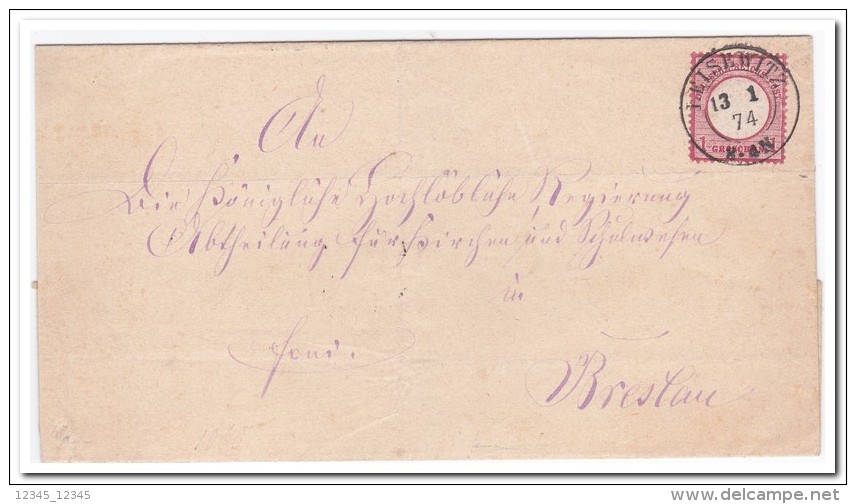 LEISEWITZ
13 1
74
8.-9N
1 GROSCHEN 1
An
Die Königliche Hochlöbliche Regierung
Abtheilung für Kirchen und Schulwesen
in
Breslau
12345_12345
delcampe.net